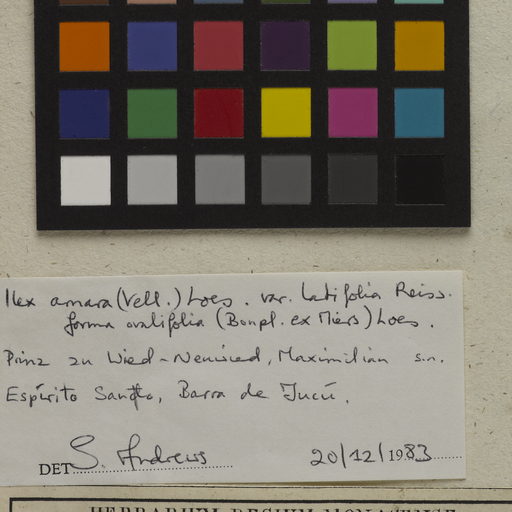 Ilex amara (Vell.) Loes. var. latifolia Reiss.
forma ovalifolia (Bonpl. ex Miers) Loes.
Prinz zu Wied-Neuwied, Maximilian s.n.
Espírito Santo, Barra de Jucú.
DET S. Andrews 20/12/1983
HERBARIUM REGIUM MONACENSE